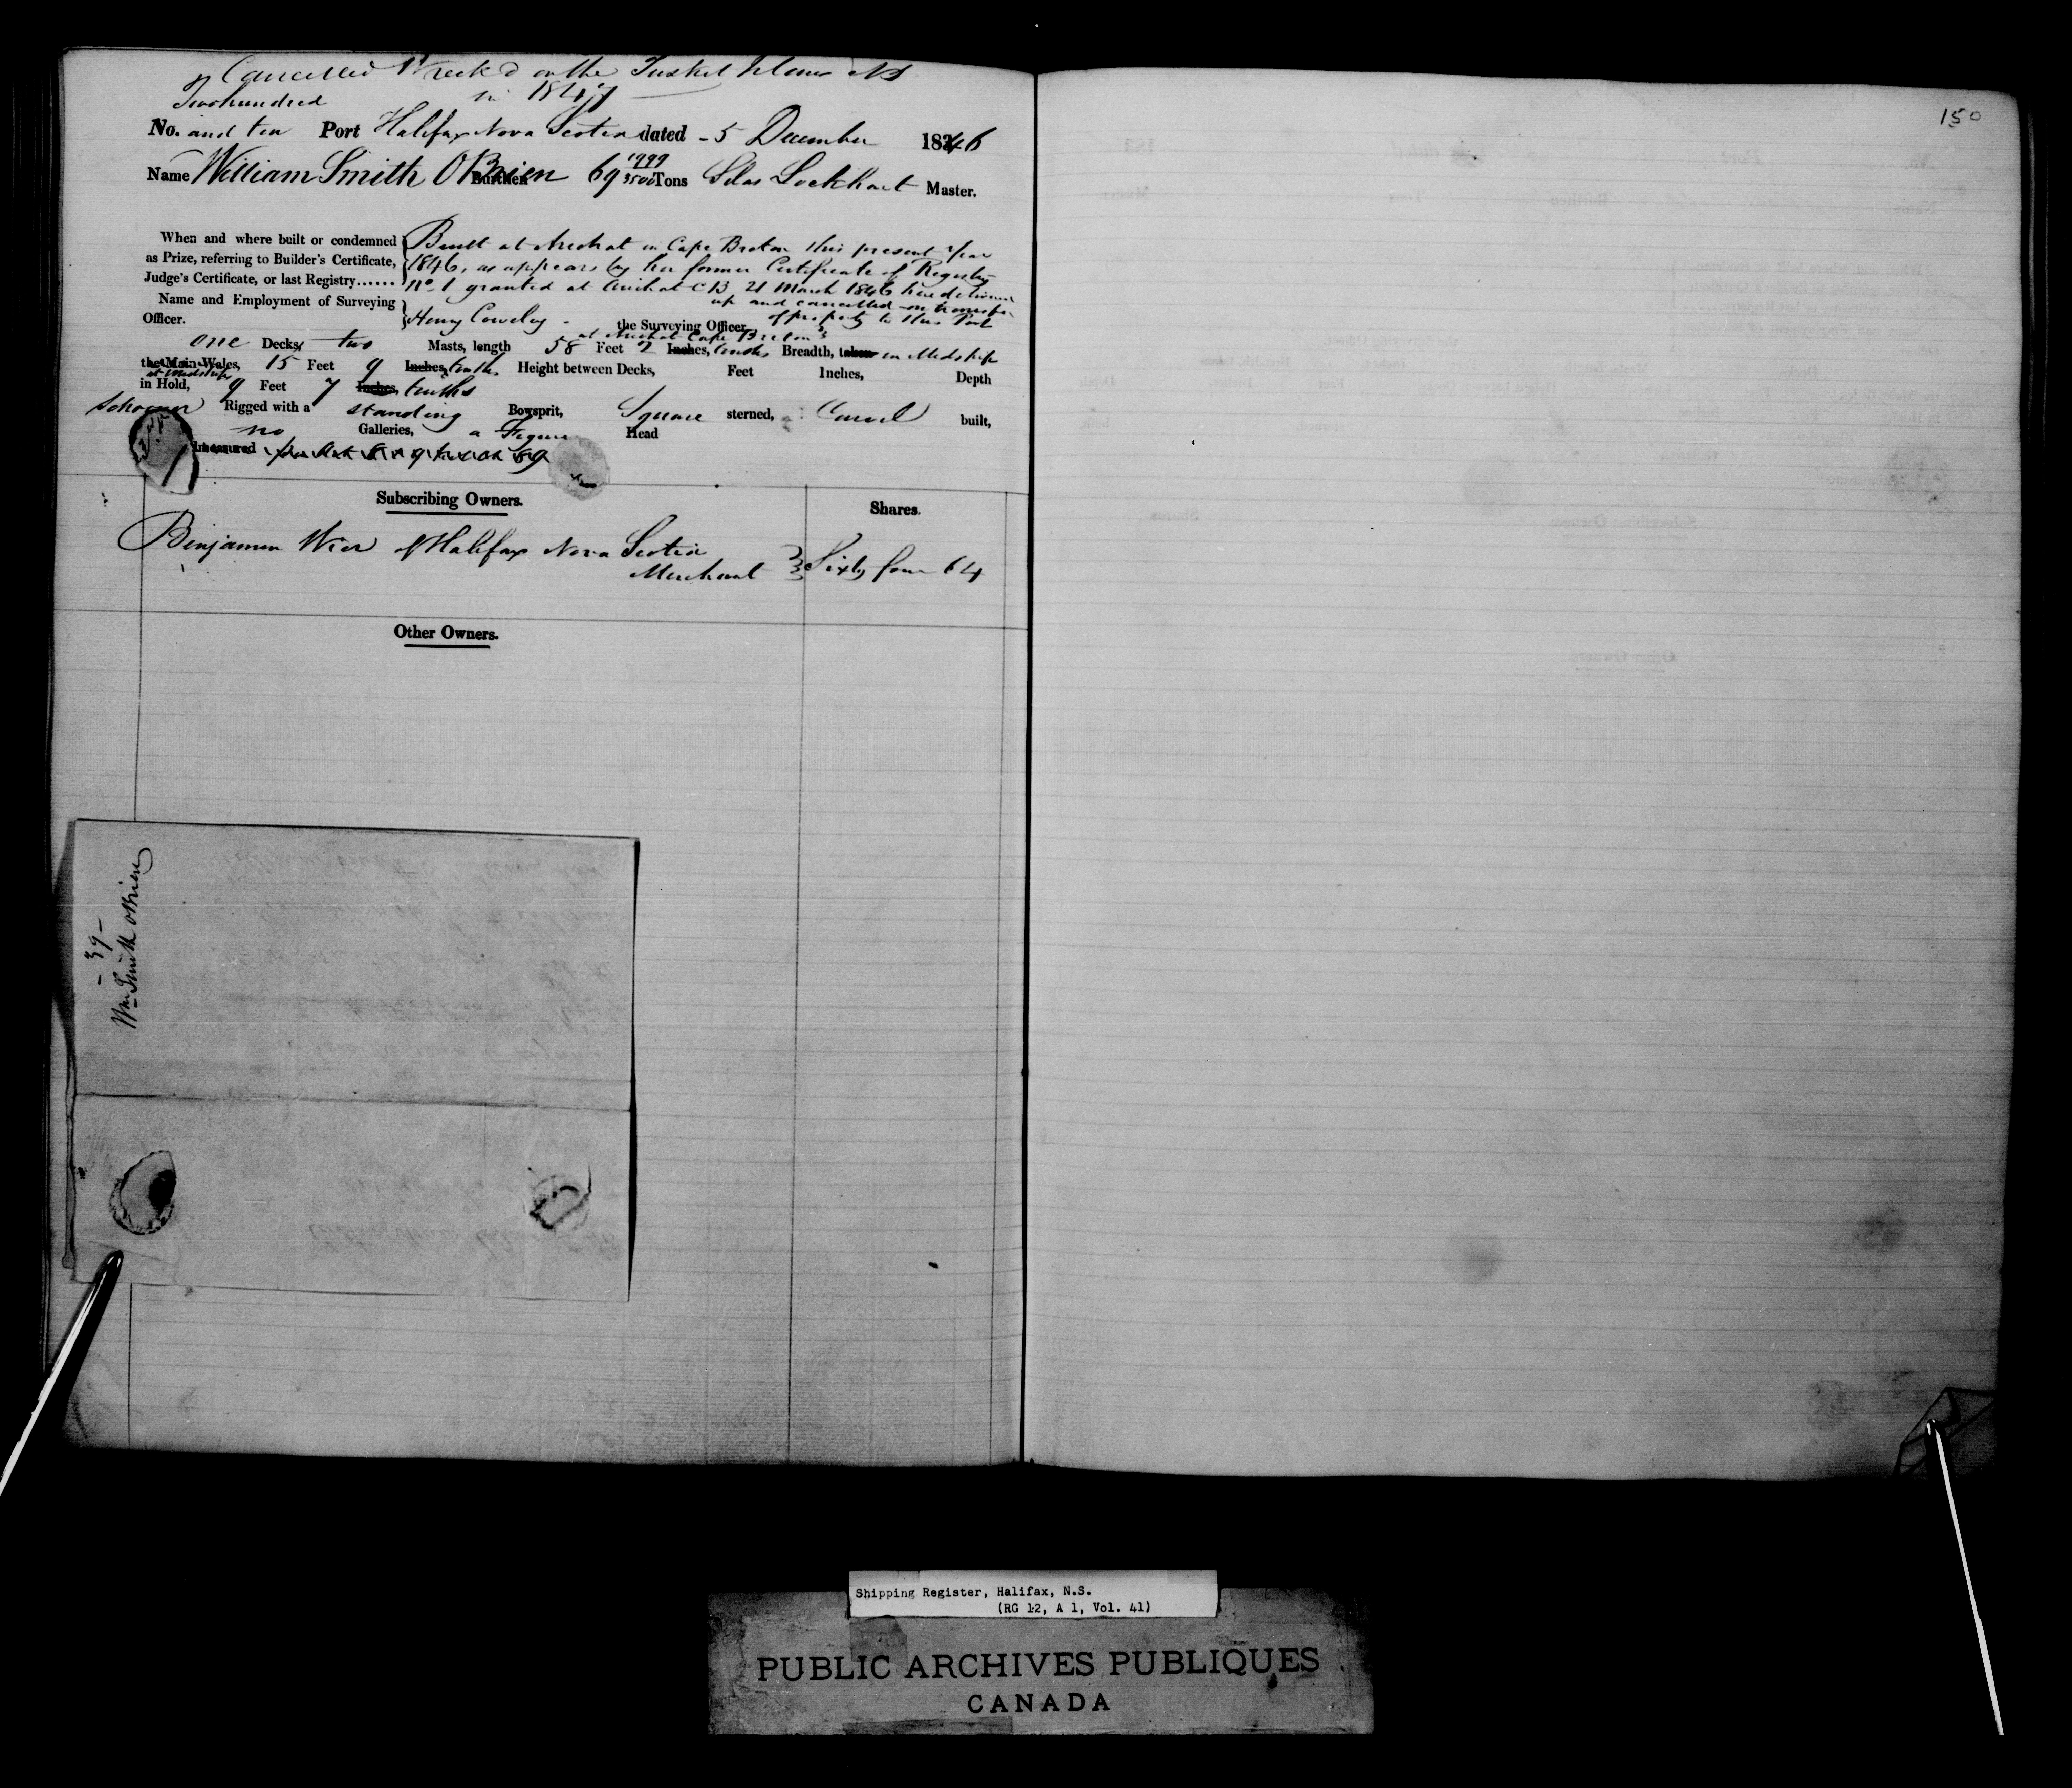 Cancelled Wreck'd on the Tusket Islands NS
in 1847
Two hundred
No. and ten Port Halifax Nova Scotia dated - 5 December 1846
Name William Smith OBrien Burthen 69 1999/3500 Tons Silas Lockhart Master.
When and where built or condemned
as Prize, referring to Builder's Certificate,
Judge's Certificate, or last Registry......
Built at Arichat in Cape Breton this present year
1846, as appears by her former Certificate of Registry
No. 1 granted at Arichat C B 21 March 1846 here delivered
up and cancelled on transfer
of property to this Port
Name and Employment of Surveying
Officer.
Henry Cowley - the Surveying Officer
at Arichat Cape Breton
one Decks, two Masts, length 58 Feet 2 Inches, tenths Breadth, taken in Midship
the Main-Wales, 15 Feet 9 Inches, tenths Height between Decks, Feet Inches, Depth
at midships
in Hold, 9 Feet 7 Inches, tenths
Schooner Rigged with a standing Bowsprit, Square sterned, Carvel built,
no Galleries, a Figure Head
Subscribing Owners.
Shares.
Benjamin Wier of Halifax Nova Scotia
Merchant Sixty four 64
Other Owners.
- 39 -
Wm Smith OBrien
150
Shipping Register, Halifax, N.S.
(RG 12, A 1, Vol. 41)
PUBLIC ARCHIVES PUBLIQUES
CANADA